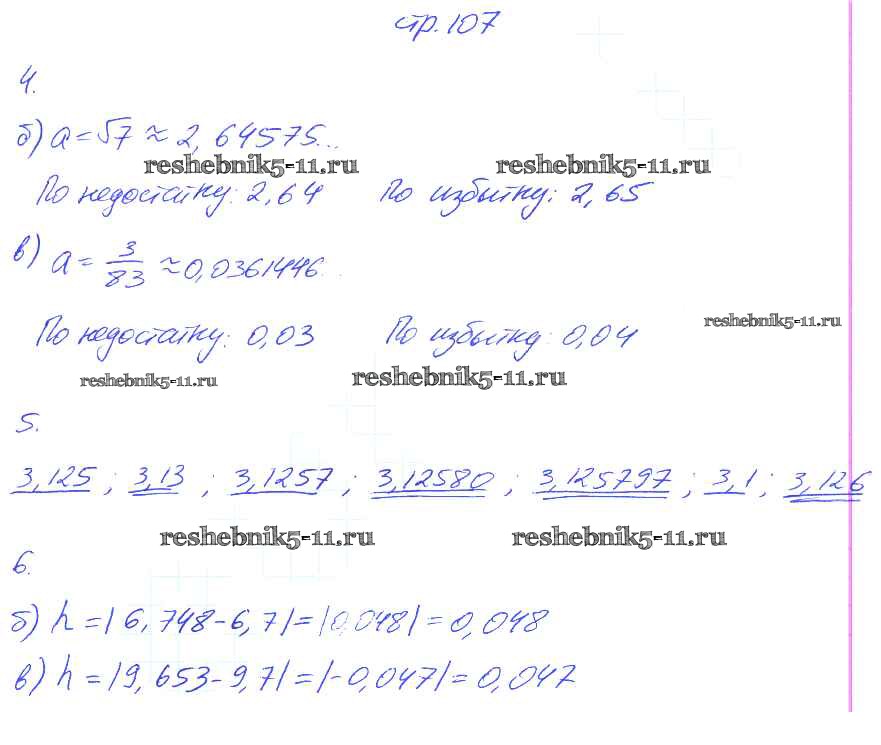 стр. 107
4.
б) a = √7 ≈ 2,64575...
reshebnik5-11.ru reshebnik5-11.ru
По недостатку: 2,64 По избытку: 2,65
в) a = 3/83 ≈ 0,0361446...
reshebnik5-11.ru
По недостатку: 0,03 По избытку: 0,04
reshebnik5-11.ru reshebnik5-11.ru
5.
3,125 ; 3,13 ; 3,1257 ; 3,12580 ; 3,125797 ; 3,1 ; 3,126
reshebnik5-11.ru reshebnik5-11.ru
6.
б) h = |6,748 - 6,7| = |0,048| = 0,048
в) h = |9,653 - 9,7| = |-0,047| = 0,047